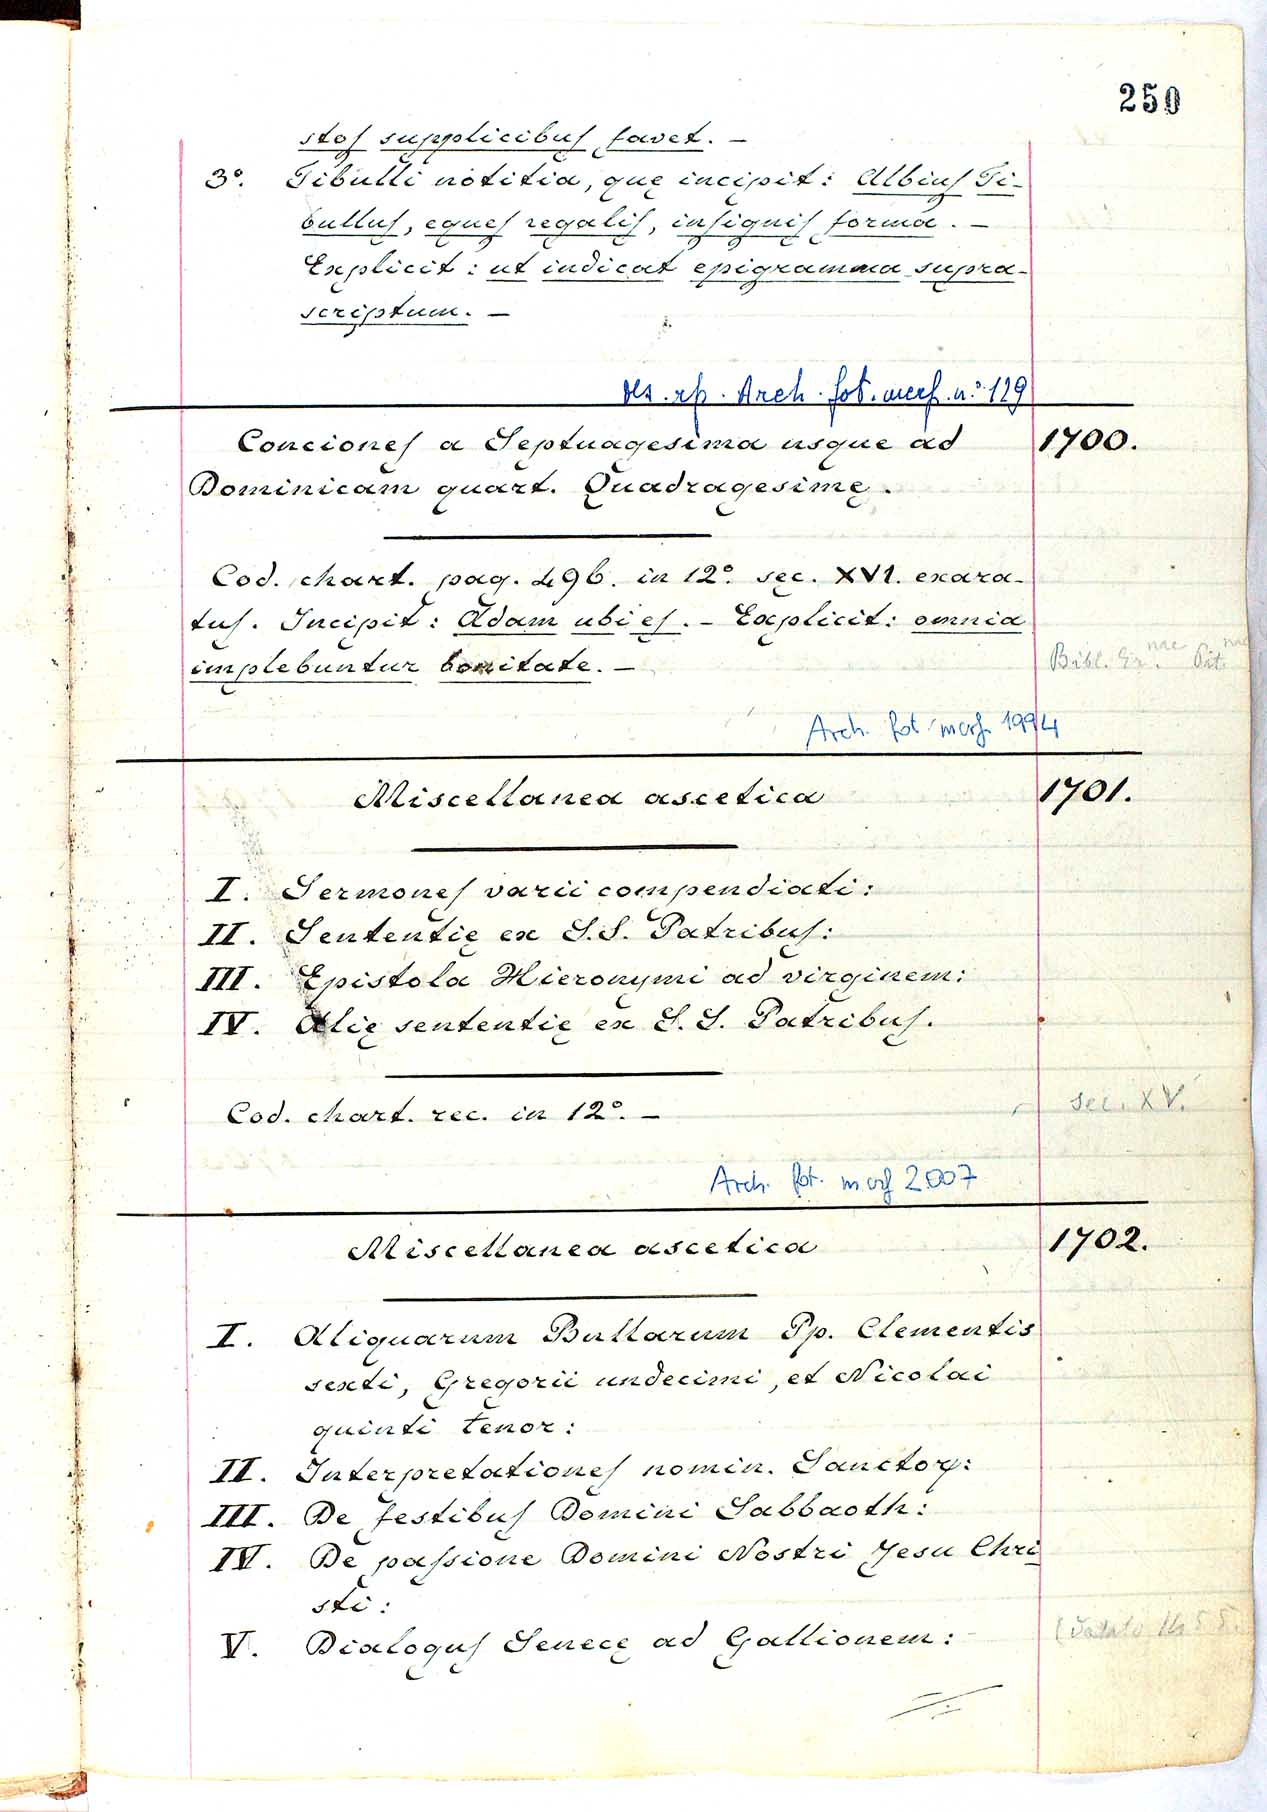 250
stos supplicibus favet. –
3º. Tibulli notitia, quę incipit: Albius Ti-
bullus, eques regalis, insignis forma. –
Explicit: ut indicat epigramma supra-
scriptum. –
Arch. fot. mcrf. n.º 129
Conciones a Septuagesima usque ad 1700.
Dominicam quart. Quadragesimę.
Cod. chart. pag. 496. in 12º. sęc. XVI. exara-
tus. Incipit: Adam ubi es. – Explicit: omnia
implebuntur bonitate. –
Bibl.
Arch. fot mcrf. 1994
Miscellanea ascetica 1701.
I. Sermones varii compendiati:
II. Sententię ex S.S. Patribus:
III. Epistola Hieronymi ad virginem:
IV. Alię sententię ex S. S. Patribus.
Cod. chart. rec. in 12º. – sec. XV.
Arch. fot. mcrf 2007
Miscellanea ascetica 1702.
I. Aliquarum Bullarum Pp. Clementis
sexti, Gregorii undecimi, et Nicolai
quinti tenor:
II. Interpretationes nomin. Sanctoꝝ:
III. De festibus Domini Sabbaoth:
IV. De passione Domini Nostri Jesu Chri
sti:
V. Dialogus Senecę ad Gallionem:
(datato